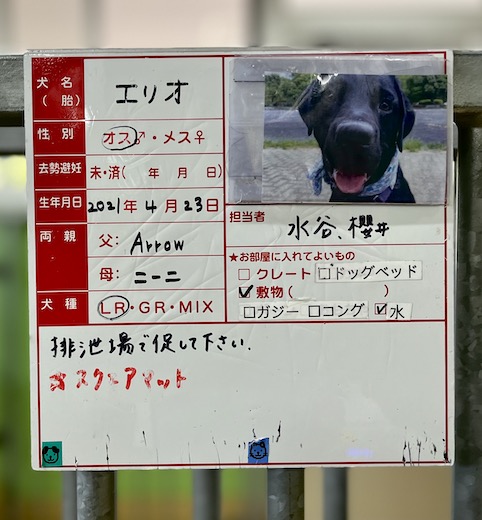 犬名
(胎)
エリオ
性別
オス♂・メス♀
去勢避妊
未・済( 年 月 日)
生年月日
2021年4月23日
両親
父: Arrow
母: ニーニ
犬種
LR・GR・MIX
担当者
水谷、櫻井
★お部屋に入れてよいもの
□クレート □ドッグベッド
☑敷物( )
□ガジー □コング ☑水
排泄場で促して下さい.
スクエアマット